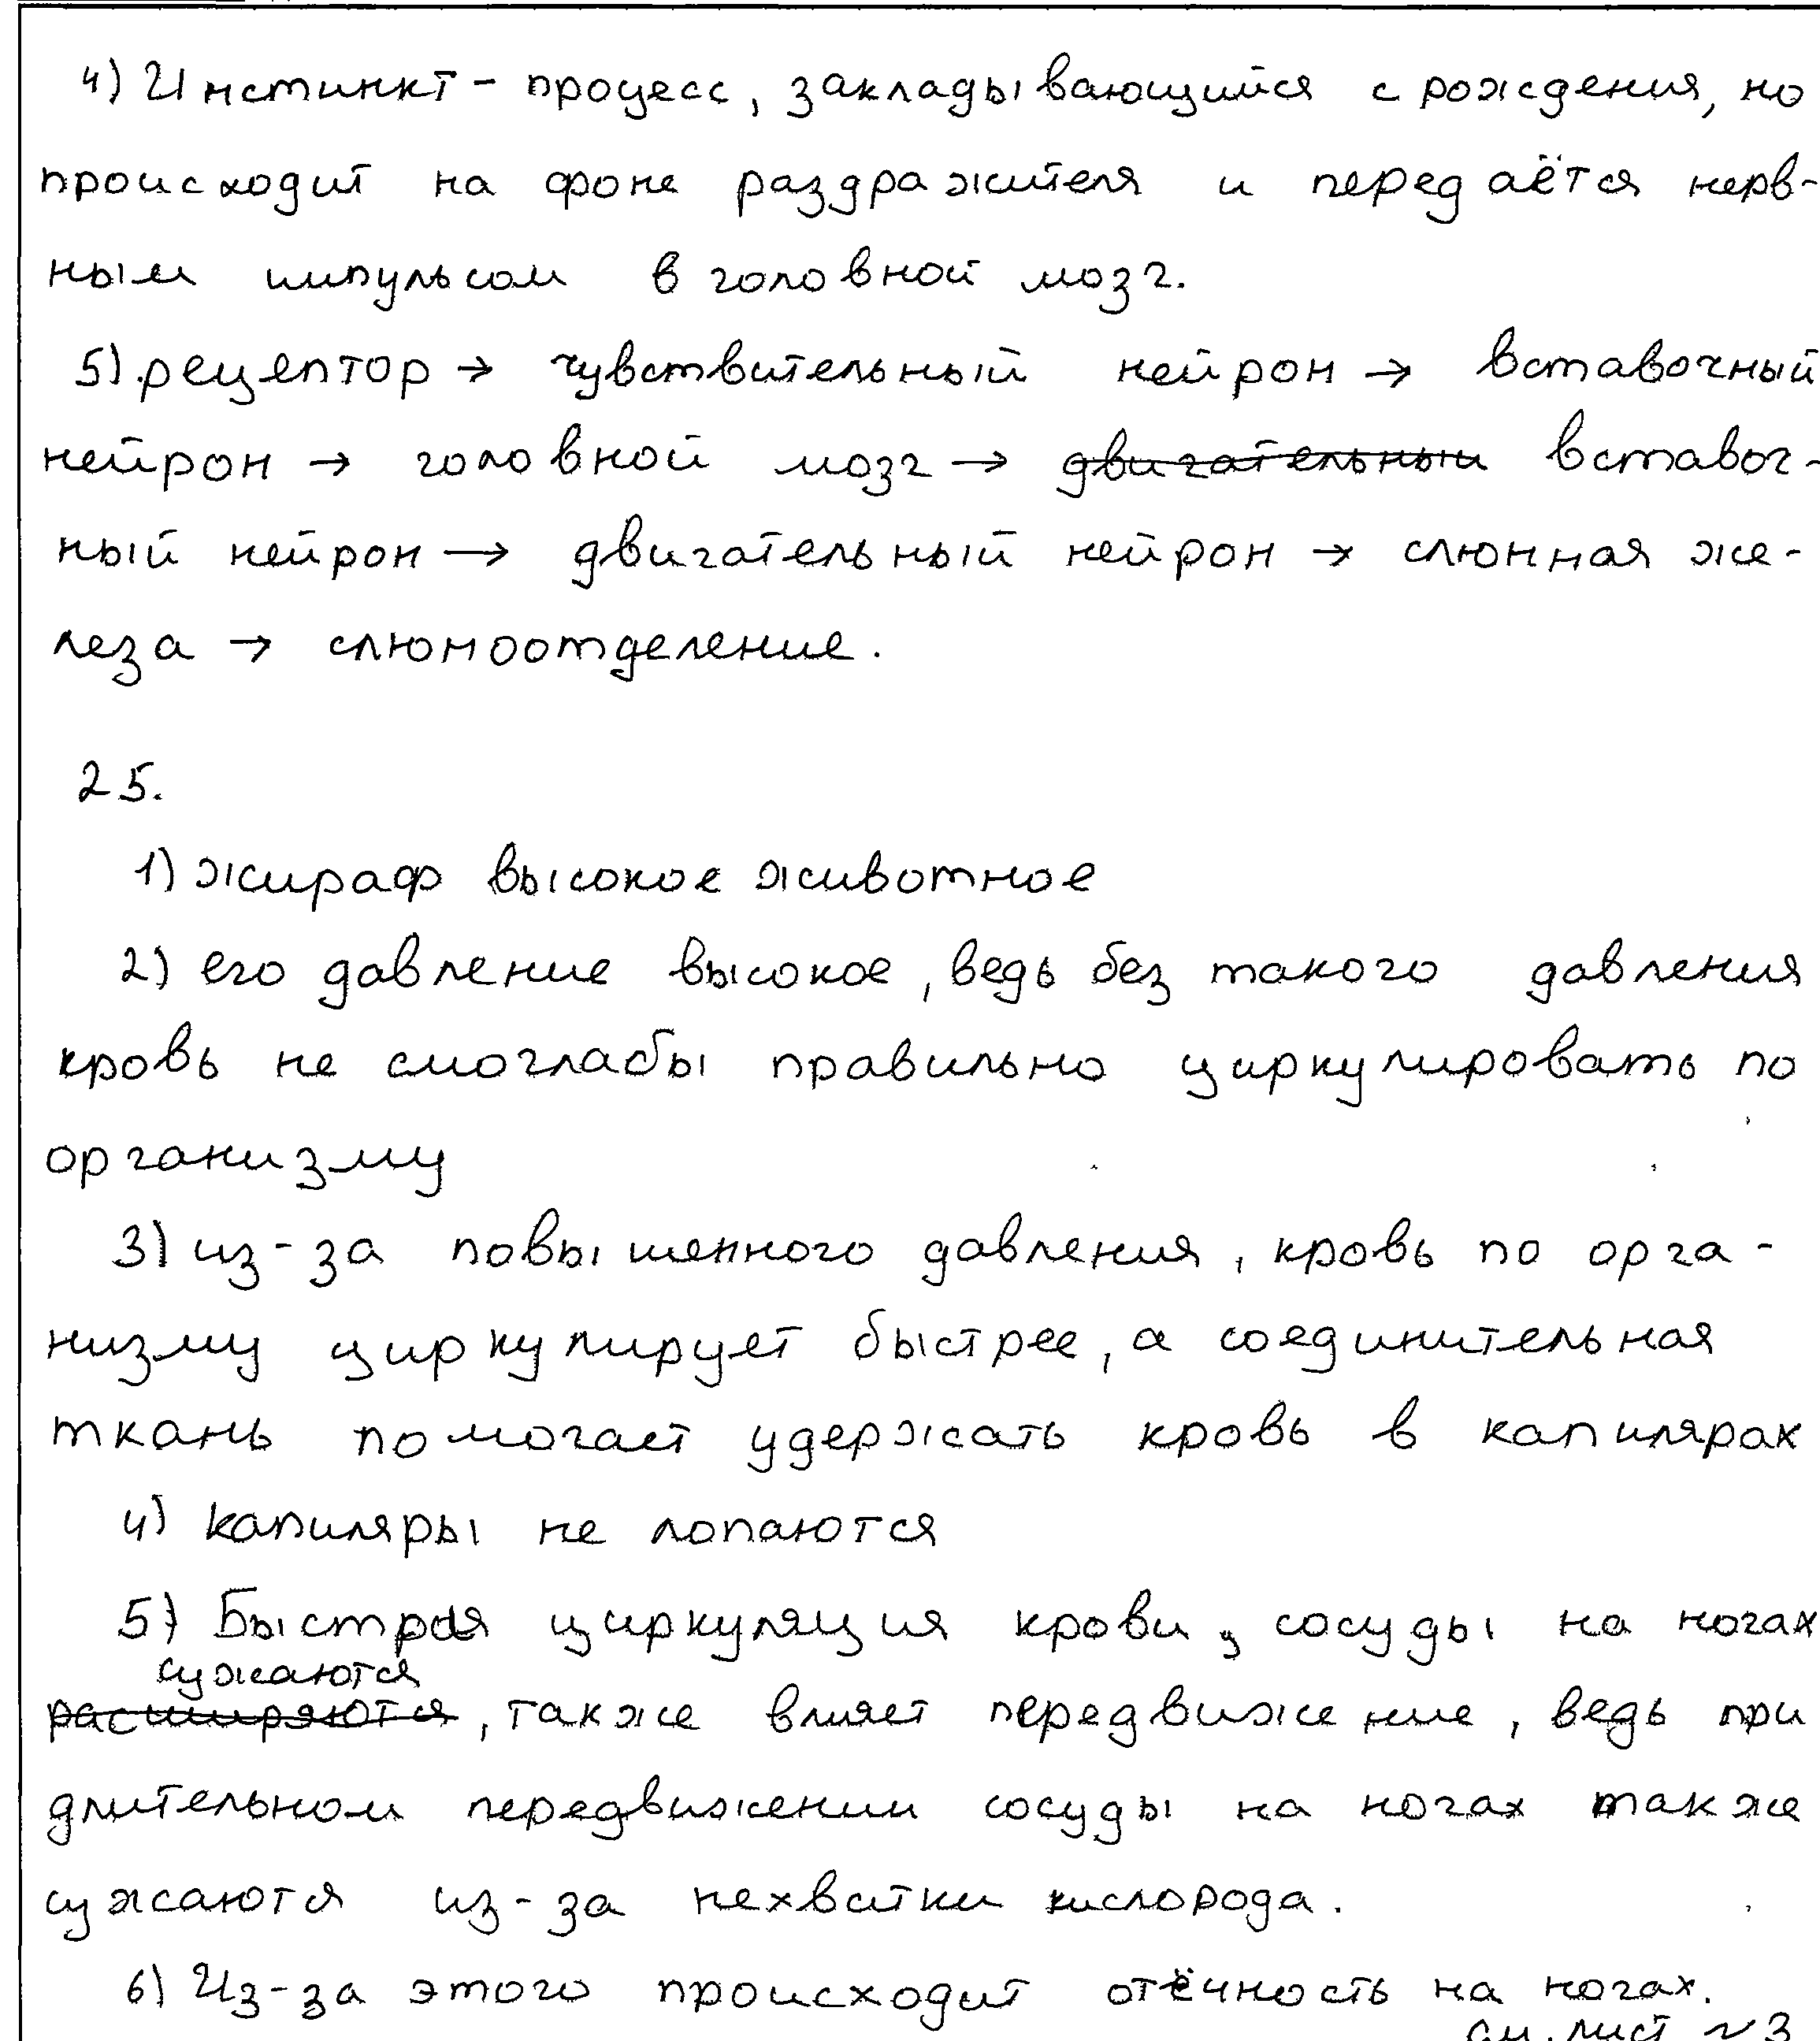 4) Инстинкт - процесс, закладывающийся с рождения, но
происходит на фоне раздражителя и передаётся нерв-
ным импульсом в головной мозг.
5) рецептор → чувствительный нейрон → вставочный
нейрон → головной мозг → двигательный вставоч-
ный нейрон → двигательный нейрон → слюнная же-
леза → слюноотделение.
25.
1) жираф высокое животное
2) его давление высокое, ведь без такого давления
кровь не смоглабы правильно циркулировать по
организму
3) из-за повышенного давления, кровь по орга-
низму циркулирует быстрее, а соединительная
ткань помогает удержать кровь в капилярах
4) капиляры не лопаются
5) Быстрая циркуляция крови, сосуды на ногах
сужаются
расширяются, также влияет передвижение, ведь при
длительном передвижении сосуды на ногах также
сужаются из-за нехватки кислорода.
6) Из-за этого происходит отёчность на ногах.
см. лист ~ 3